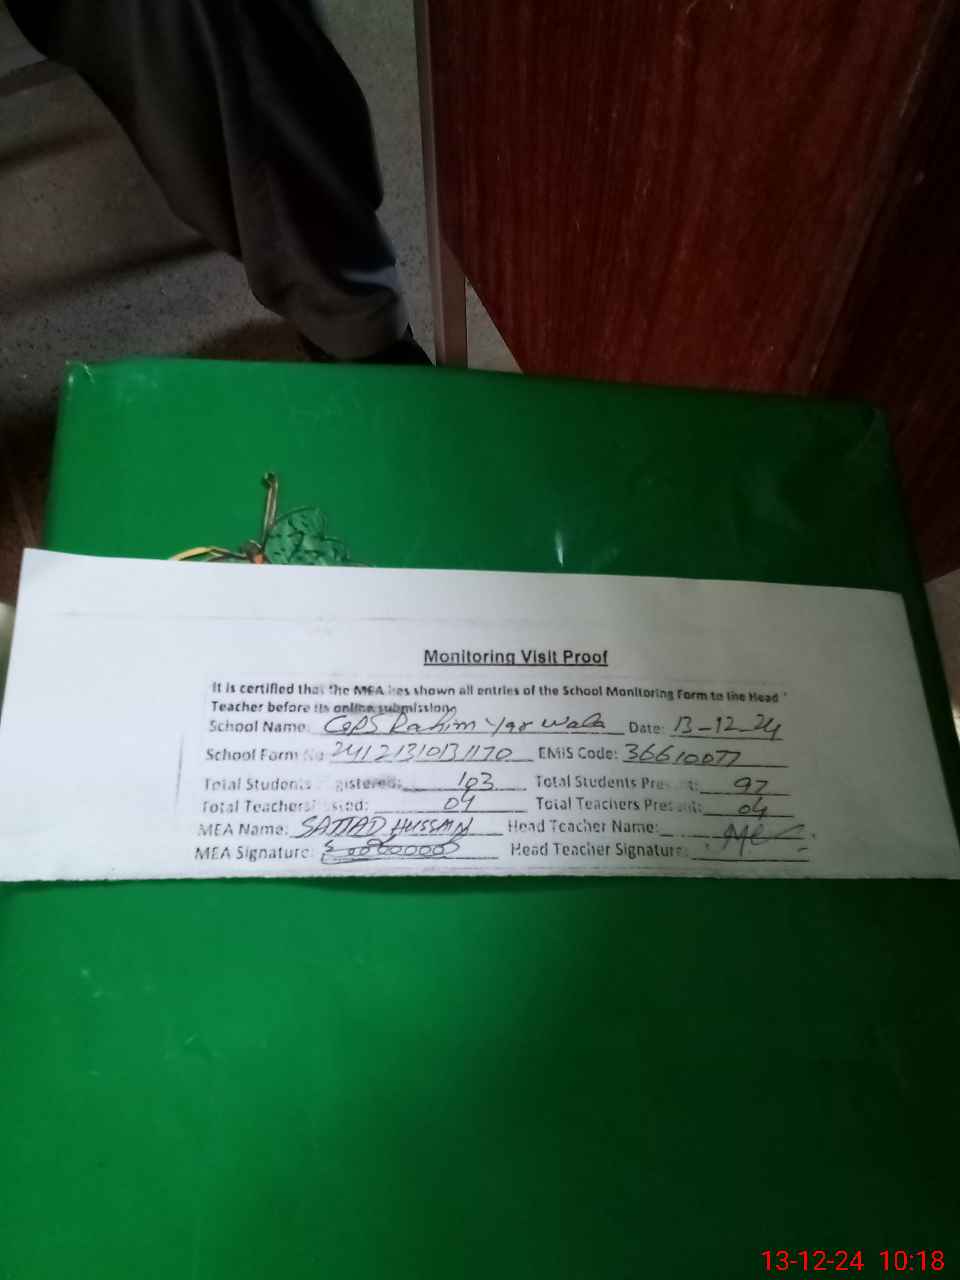 Monitoring Visit Proof
It is certified that the MEA has shown all entries of the School Monitoring Form to the Head
Teacher before its online submission.
School Name: GGPS Rahim Yar Wala Date: 13-12-24
School Form No 24121310131170 EMIS Code: 36610077
Total Students Registered: 103 Total Students Present: 97
Total Teachers 04 Total Teachers Present: 04
MEA Name: SAJJAD HUSSAIN Head Teacher Name:
MEA Signature: Head Teacher Signature:
13-12-24 10:18